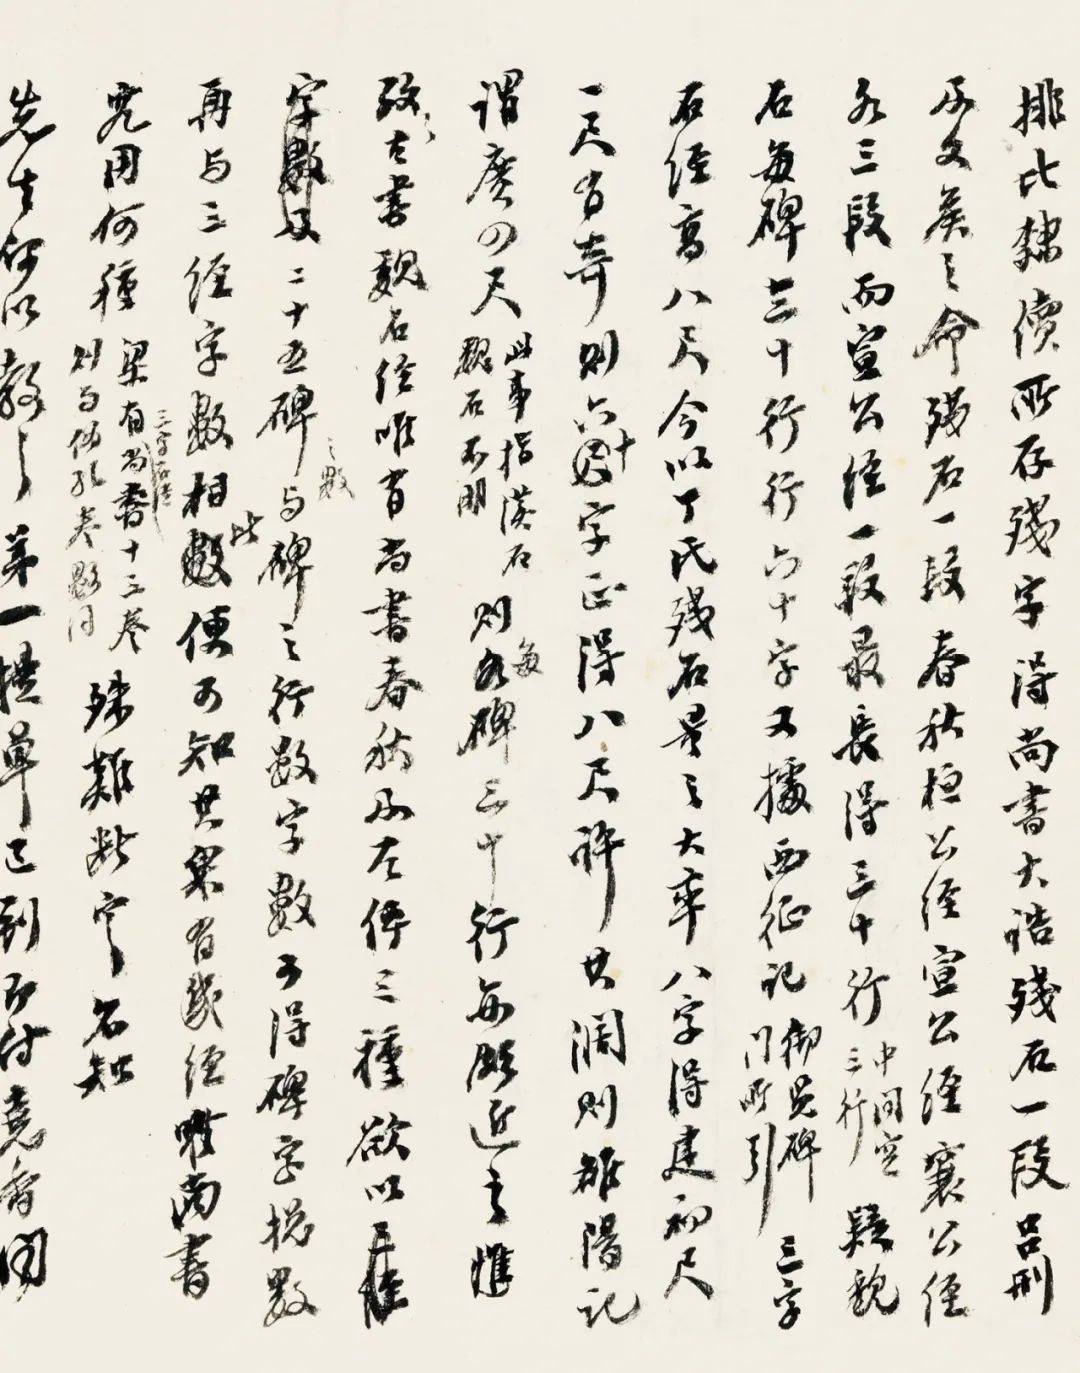 排比隸續所存殘字得尚書大誥殘石一段呂刑
及文侯之命殘石一段春秋桓公經宣公經襄公經
各三段而宣公經一段最長得三十行中間空三行疑魏
石每碑三十行行六十字又據西征記御覽碑門所引三字
石經高八尺今以丁氏殘石量之大率八字得建初尺
一尺有奇則六十字正得八尺許其濶則雒陽記
謂廣四尺此事指漢石魏石不明則每碑三十行每頗近之惟
攷古書魏石經唯有尚書春秋及左傳三種欲以
字數及二十五碑之數與碑之行數字數可得碑字捴數
再与三經字數相此便可知其果有幾經唯尚書
究用何種梁有三字石經尚書十三卷則与偽孔卷數同殊難斷定不知
先生何以教之第一提單已到即付